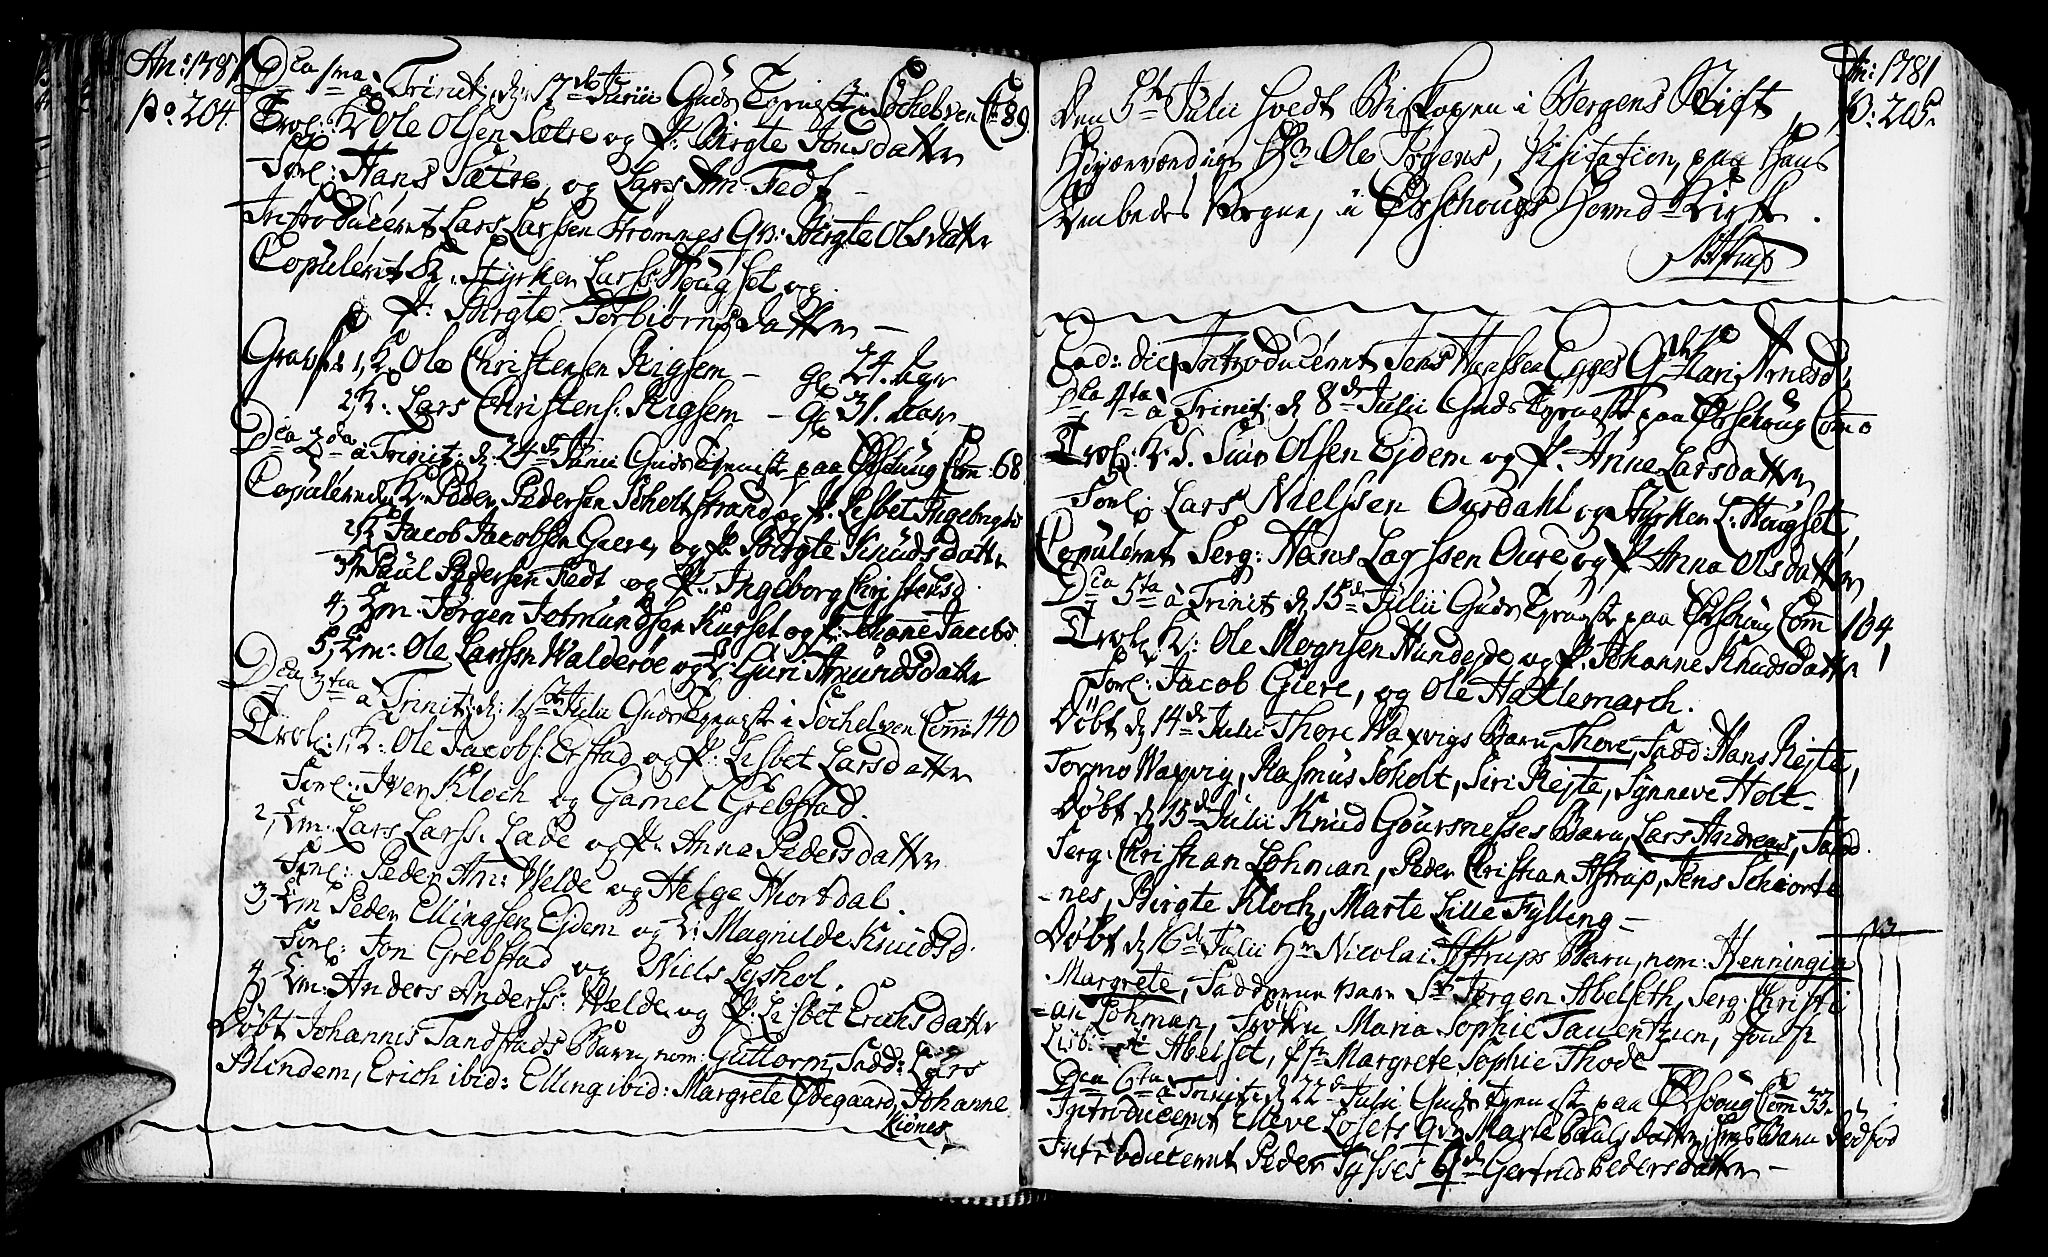 An: 1781
Po. 204.
Dca 1ma à Trinit: d: 17de Junii Guds Tieneste i Søchelven C: 89.
Trol: K Ole Olsen Sætre og P: Birgte Jonsdatter
Forl: Hans Sætre, og Lars An: Fedt
Introduceret Lars Larssen Strømnes Qv: Birgte Olsdatter
Copuleret K: Styrker Larss: Hougset og
P: Birgte Torbiørnsdatter
1, K. Ole Christensen Rigsem - gl 24. Aar
2, K: Lars Christens: Rigsem - gl 31. Aar
Dca 2da à Trinit: d: 24de Junii Guds Tieneste paa Ørschoug Com: 68
Copulerede K. Peder Pedersen Scholt Strand og P. Lisbet Ingebrigtsd
2, K Jacob Jacobsen Giere, og P. Birgte Knudsdatter
3, Paul Pedersen Fedt og P. Ingeborg Christensd.
4, Em: Jørgen Jetmundsen Kurset og P: Johanne Jacobsd
5, Em: Ole Larssen Walderøe og E: Guri Amundsdatter
Dca 3tia à Trinit: d: 1ste Julii Guds Tieneste i Søchelven Com: 140
Trol: 1, K: Ole Jacobs: Erstad og P: Lisbet Larsdatter
Forl: Iver Kloch og Gamel Grebstad.
2, Em: Lars Larss. Lade og P. Anne Pedersdatter
Forl: Peder An: Welde og Helge Mortdal.
3, Em Peder Ellingsen Ejdem og E: Magnilde Knudsd.
Forl: Jon Grebstad og Niels Lyshol.
4, Em: Anders Anderss: Welde og P. Lisbet Erichsdatter
Døbt Johannis Tandstads Barn, nom: Guttorm, Fadd: Lars
Alindem, Erich ibid: Elling ibid: Margrete Ødegaard, Johanne
Kiønes
An: 1781
P: 205.
Den 5te Julii holdt Biskopen i Bergens Stift
Høyærværdige Hr Ole Irgens, Visitation, paa Hans
Embedes Vegne, i Ørschougs Hoved Kirke.
NAstrup
Eod: die Introduceret Jens Hanssen Egges Qv Kari Arnesd:
Dca 4ta à Trinit: d 8de Julii Guds Tieneste paa Ørschoug Com 0
Trol: K. S. Siur Olsen Ejdem og P. Anne Larsdatter
Forl: Lars Nielssen Ousdahl og Styrker L: Hougset,
Copuleret Serg: Hans Larssen Oure, og P Anna Olsdatter
Dca 5ta à Trinit d 15de Julii Guds Tieneste paa Ørschoug Com 164,
Trol: K: Ole Mognsen Hundejde og P. Johanne Knudsdatter
Forl: Jacob Giere, og Ole Hatlemarch.
Døbt d 14de Julii Thore Waxvigs Barn Thore, Fadd: Hans Rejte,
Tormo Waxvig, Rasmus Scholt, Siri Rejte, Synneve Holt-
Døbt d 15de Julii Knud Goursnesses Barn, Lars Andreas, Fadd.
Serg: Christian Lohman, Peder Christian Astrup, Jens Schiorte
-nes, Birgte Kloch, Marte Lille Fylling -
Døbt d 16de Julii Hr Nicolai Astrups Barn, nom: Henningia
Margrete, Fadderne vare Sr Jørgen Abelseth, Serg. Christi
-an Lohman, Frøken Maria Sophie Tauentzien,
Abelset, Margrete Sophie Thode
Dca 6ta à Trinit, d 22de Julii Guds Tieneste paa Ørschoug Com 33.
Introduceret Elleve Losets Qv Marte Paulsdatter, hvis Barn dødfød
Introduceret Peder Tysses Gertrud Pedersdatter -